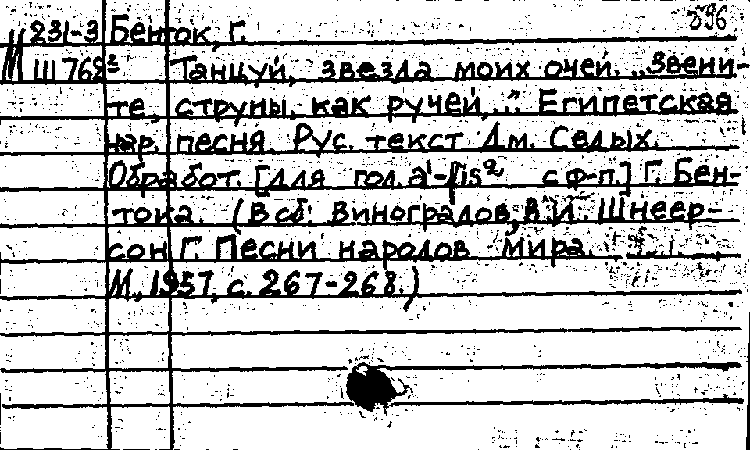 596
М 231-3 Бенток, Г.
Ш 768² Танцуй, звезда моих очей. „Звени-
те, струны, как ручей,..." Египетская
нар. песня. Рус. текст Дм. Седых.
Обработ. [для гол. a¹-fis² с ф-п.] Г. Бен-
тока. (В сб: Виноградов, В. И. Шнеер-
сон Г. Песни народов мира.
М., 1957, с. 267-268.)